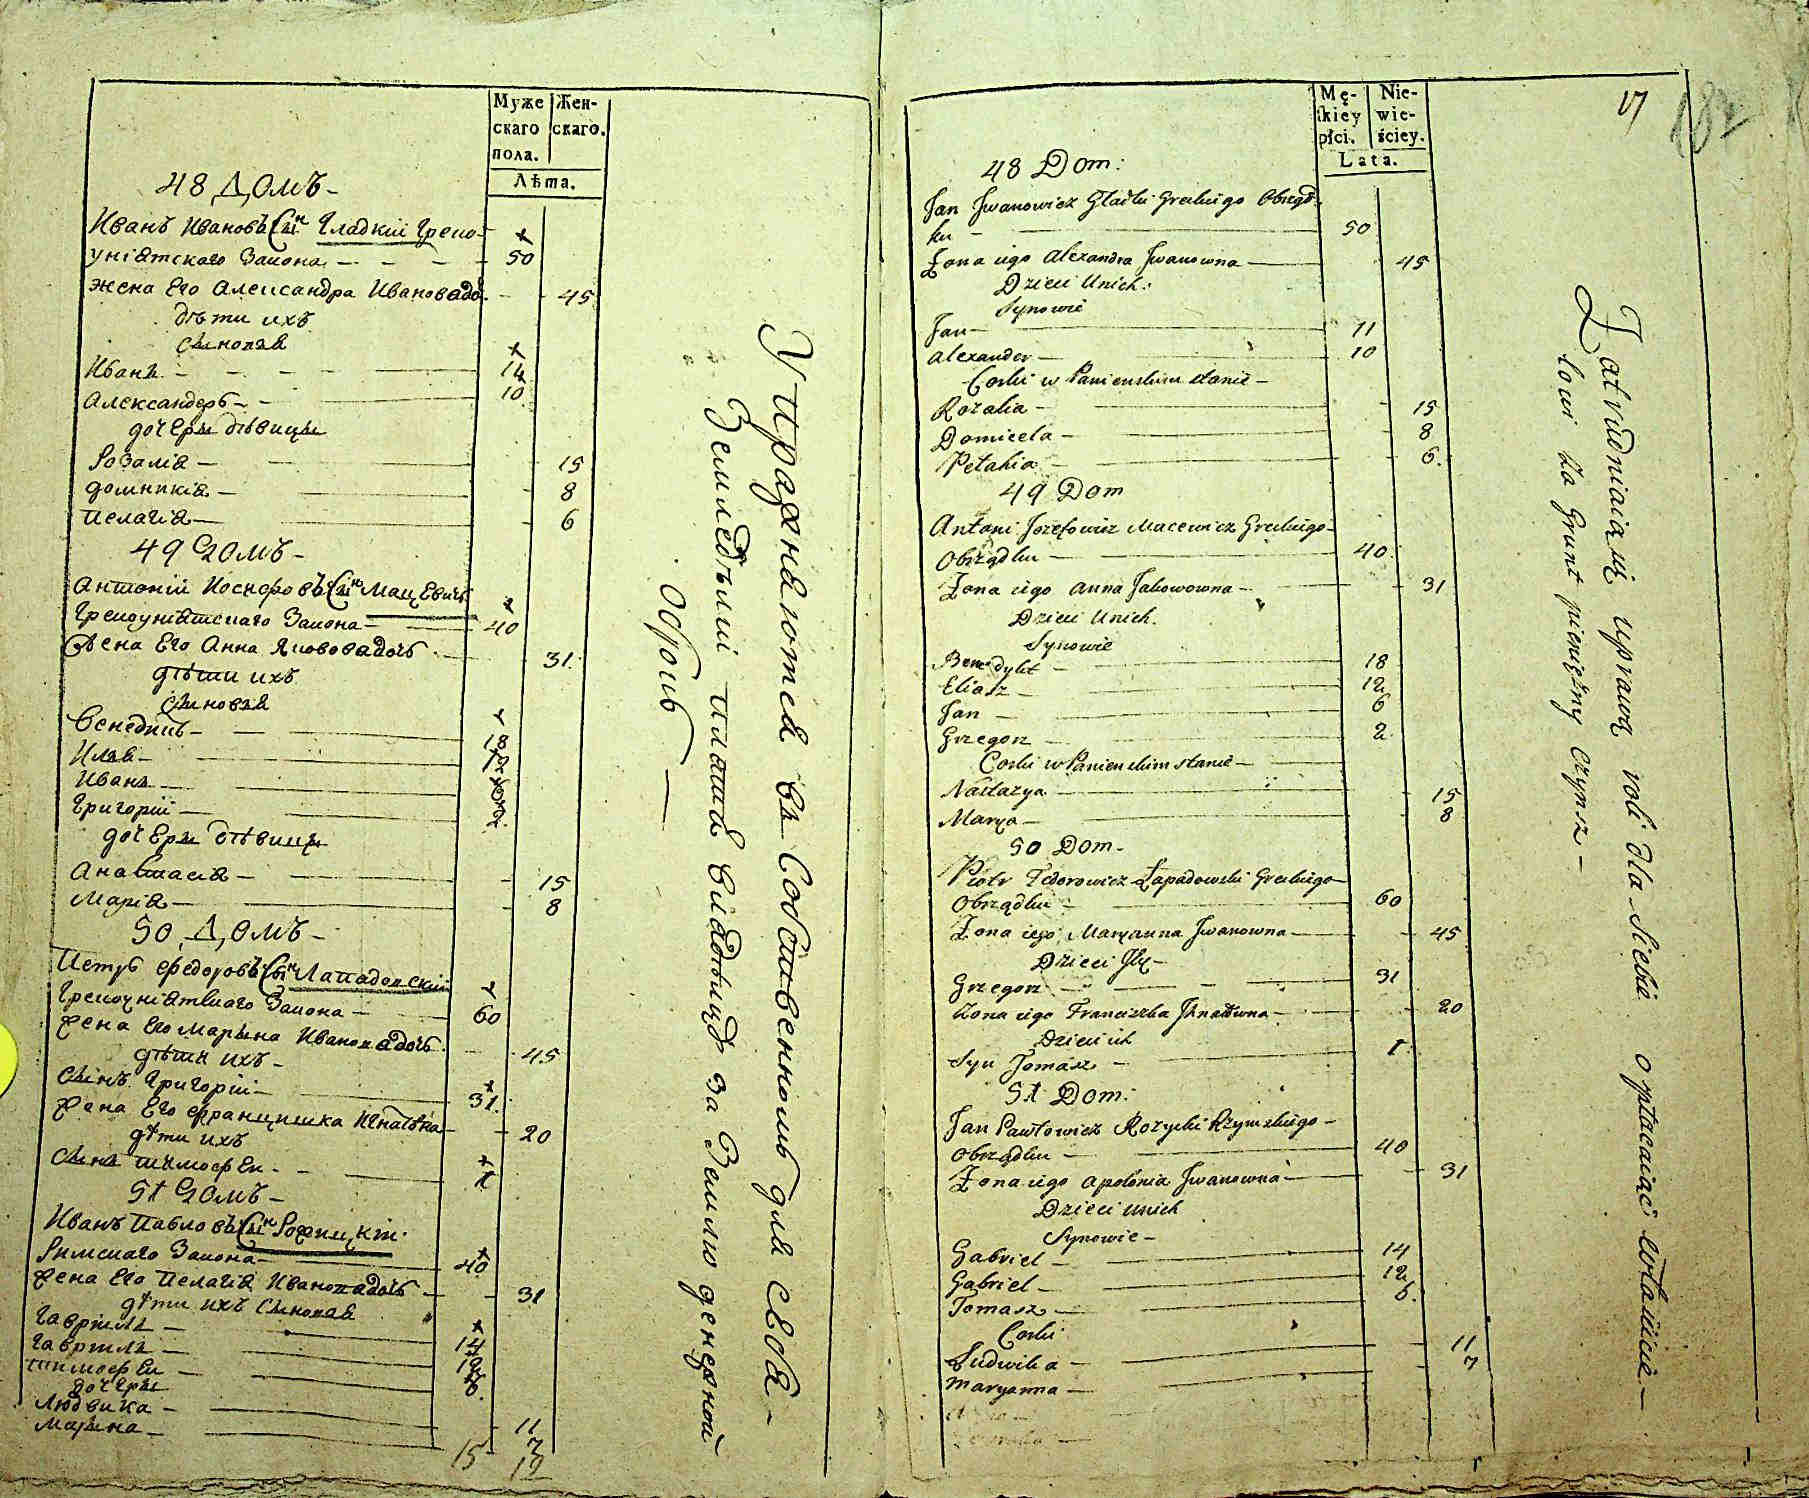 Муже
скаго
пола.
Жен-
скаго.
Лѣта.
48 Домъ -
Иванъ Ивановъ Сынъ Гладкий Греко-
униатскаго Закона - 50
жена Его Александра Иванова дочь - 45
дѣти ихъ
сыновья
Иванъ - 14
Александеръ - 10
дочери дѣвицы
Розалия - 15
Домникия - 8
Пелагия - 6
49 Домъ -
Антоний Иосифовъ Сынъ Мацевичъ
Грекоуниятскаго Закона - 40
Жена Его Анна Яковова дочь - 31
дѣти ихъ
сыновья
Бенедикъ - 18
Илья -
Иванъ -
Григорий - 2
дочери дѣвицы
Анастасия - 15
Мария - 8
50 Домъ -
Петръ Федоровъ Сынъ Лападовский
Грекоуниятскаго Закона - 60
Жена Его Марьяна Иванова дочь - 45
дѣти ихъ -
Сынъ Григорий - 31
Жена Его Францишка - 20
дѣти ихъ
Сынъ Тимофей - 1
51 Домъ -
Иванъ Павловъ Сынъ Рожицкий
Римскаго Закона - 40
Жена Его Пелагия Иванова дочь - 31
дѣти ихъ Сыновья
Гавриилъ - 14
Гавриилъ - 12
Тимофей - 6
дочери
Людвика - 11
Марьяна - 7
15 12
Упражняются въ Собственномъ для себя -
Земледѣлии платя владѣльцу за Землю денежной
Оброкъ -
Mę-
skiey
płci.
Nie-
wie-
ściey.
Lata.
17
182
48 Dom:
Jan Iwanowicz Gładki Greckiego Obrząd-
ku - 50
Zona iego Alexandra Iwanowna - 45
Dzieci Unich:
Synowie
Jan - 11
Alexander - 10
Corki w Panienskim stanie -
Rozalia - 15
Domicela - 8
Petahia - 6.
49 Dom
Antoni Jozefowicz Macewicz Greckiego -
Obrządku - 40
Zona iego Anna Jakowowna - 31
Dzieci Unich.
Synowie
Benedykt - 18
Eliasz - 12
Jan - 6
Grzegorz - 2
Corki w Panienskim stanie -
Nastazya - 15
Marya - 8
50 Dom -
Piotr Fedorowicz Łapadowski Greckiego -
Obrządku - 60
Zona iego Maryanna Iwanowna - 45
Dzieci Ich -
Grzegorz - 31
Zona iego Franciszka - 20
Dzieci ich
Syn Tomasz - 1
51 Dom:
Jan Pawłowicz Rozycki Rzymskiego -
Obrządku - 40
Zona iego Apolonia Iwanowna - 31
Dzieci unich
Synowie -
Gabriel - 14
Gabriel - 12
Tomasz - 6
Corki
Ludwika - 11
Maryanna - 7
Zatrudniaią się uprawą roli dla Siebie opłacaiąc
lowi za Grunt pieniężny Czynsz -